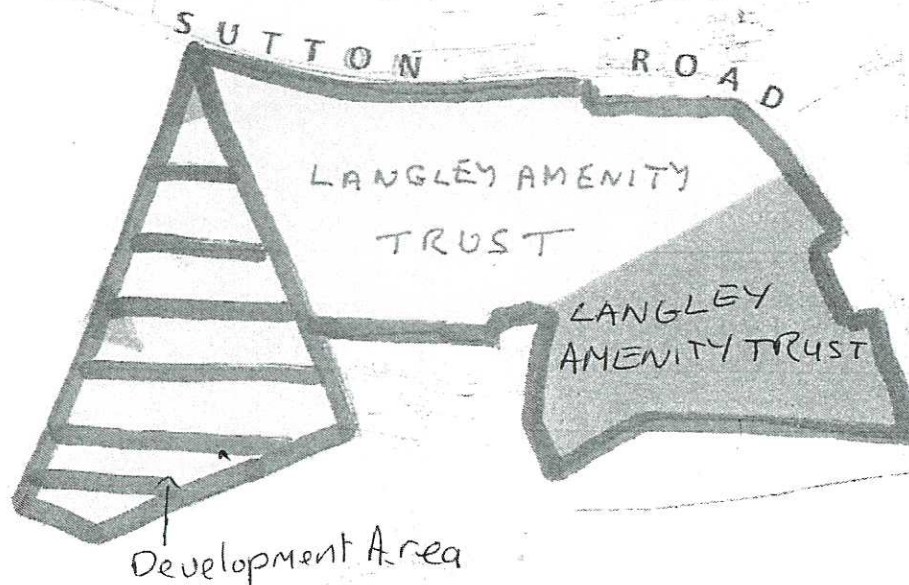 SUTTON ROAD
LANGLEY AMENITY
TRUST
LANGLEY
AMENITY TRUST
Development Area